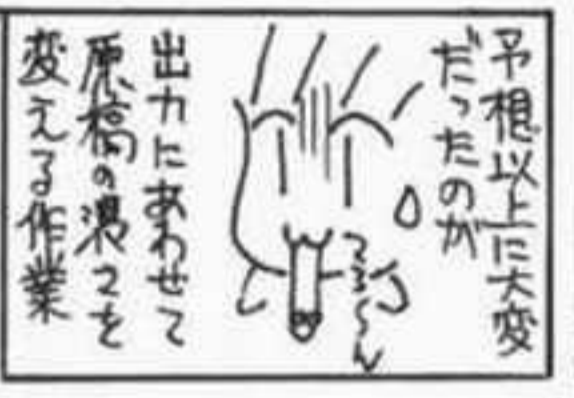 予想以上に大変
だったのが
うう〜ん
出力にあわせて
原稿の濃さを
変える作業